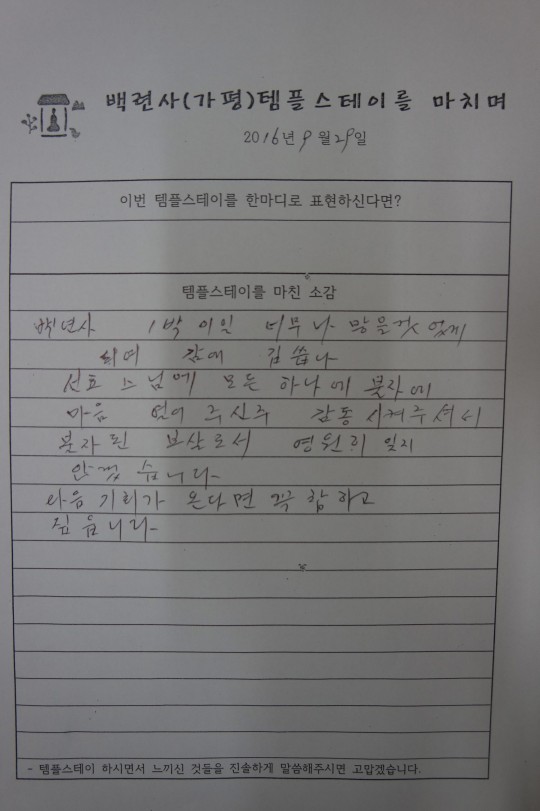 백련사(가평)템플스테이를 마치며
2016년 9월 29일
이번 템플스테이를 한마디로 표현하신다면?
템플스테이를 마친 소감
백년사 1박 이일 너무나 많을것 얻게
되여 감에 김씁니다
선효 스님에 모든 하나에 불자에
마음 얻어 주신주 감동 시켜주셔서
불자된 보살로서 영원히 잊지
안겠 습니다
다음 기회가 온다면 꼭 함하고
짐읍니다
- 템플스테이 하시면서 느끼신 것들을 진솔하게 말씀해주시면 고맙겠습니다.